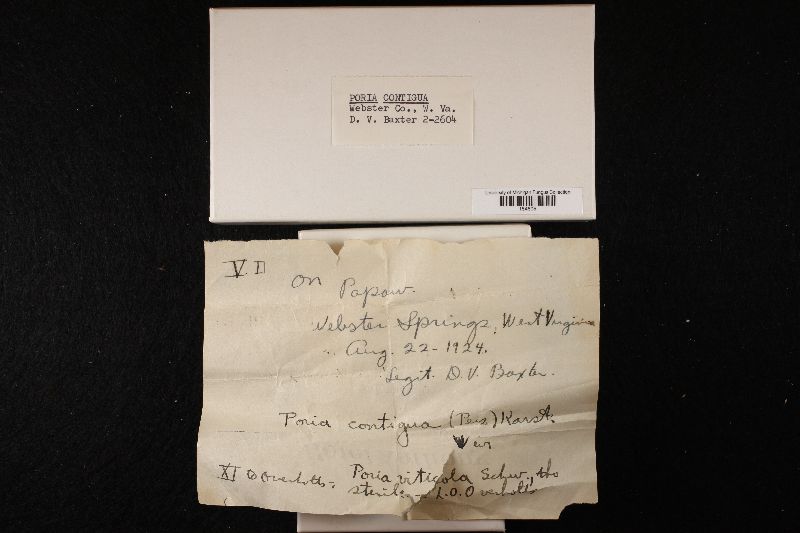 PORIA CONTIGUA
Webster Co., W. Va.
D. V. Baxter 2-2604
University of Michigan Fungus Collection
V D
On Papaw.
Webster Springs, West Virginia
Aug. 22-1924.
Legit. D. V. Baxter.
Poria contigua (Pers) Karst
XI Overholts-
Poria viticola Schw., tho
sterile - L.O. Overholts